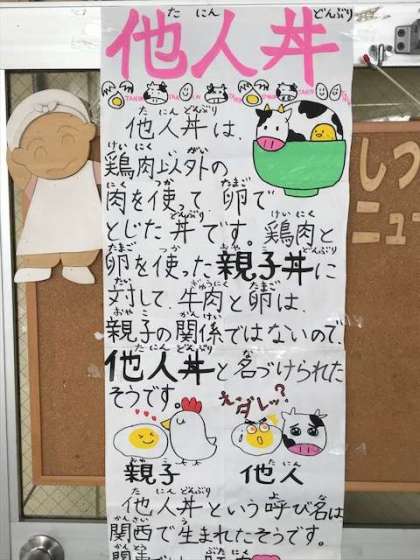 他人丼
他人丼は、
鶏肉以外の
肉を使って、卵で
とじた丼です。鶏肉と
卵を使った親子丼に
対して、牛肉と卵は、
親子の関係ではないので、
他人丼と名づけられた
そうです。
えっ、ダレッ?
親子
他人
他人丼という呼び名は
関西で生まれたそうです。
しつ
ニュ